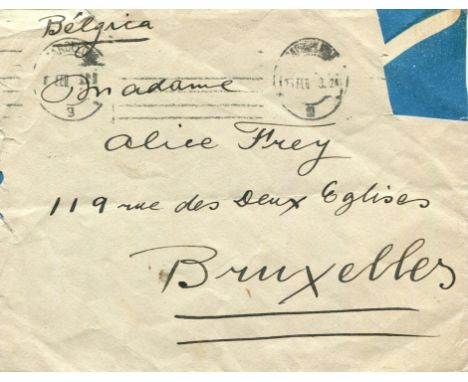 Bélgica
Madame
Alice Frey
119 rue des Deux Eglises
Bruxelles